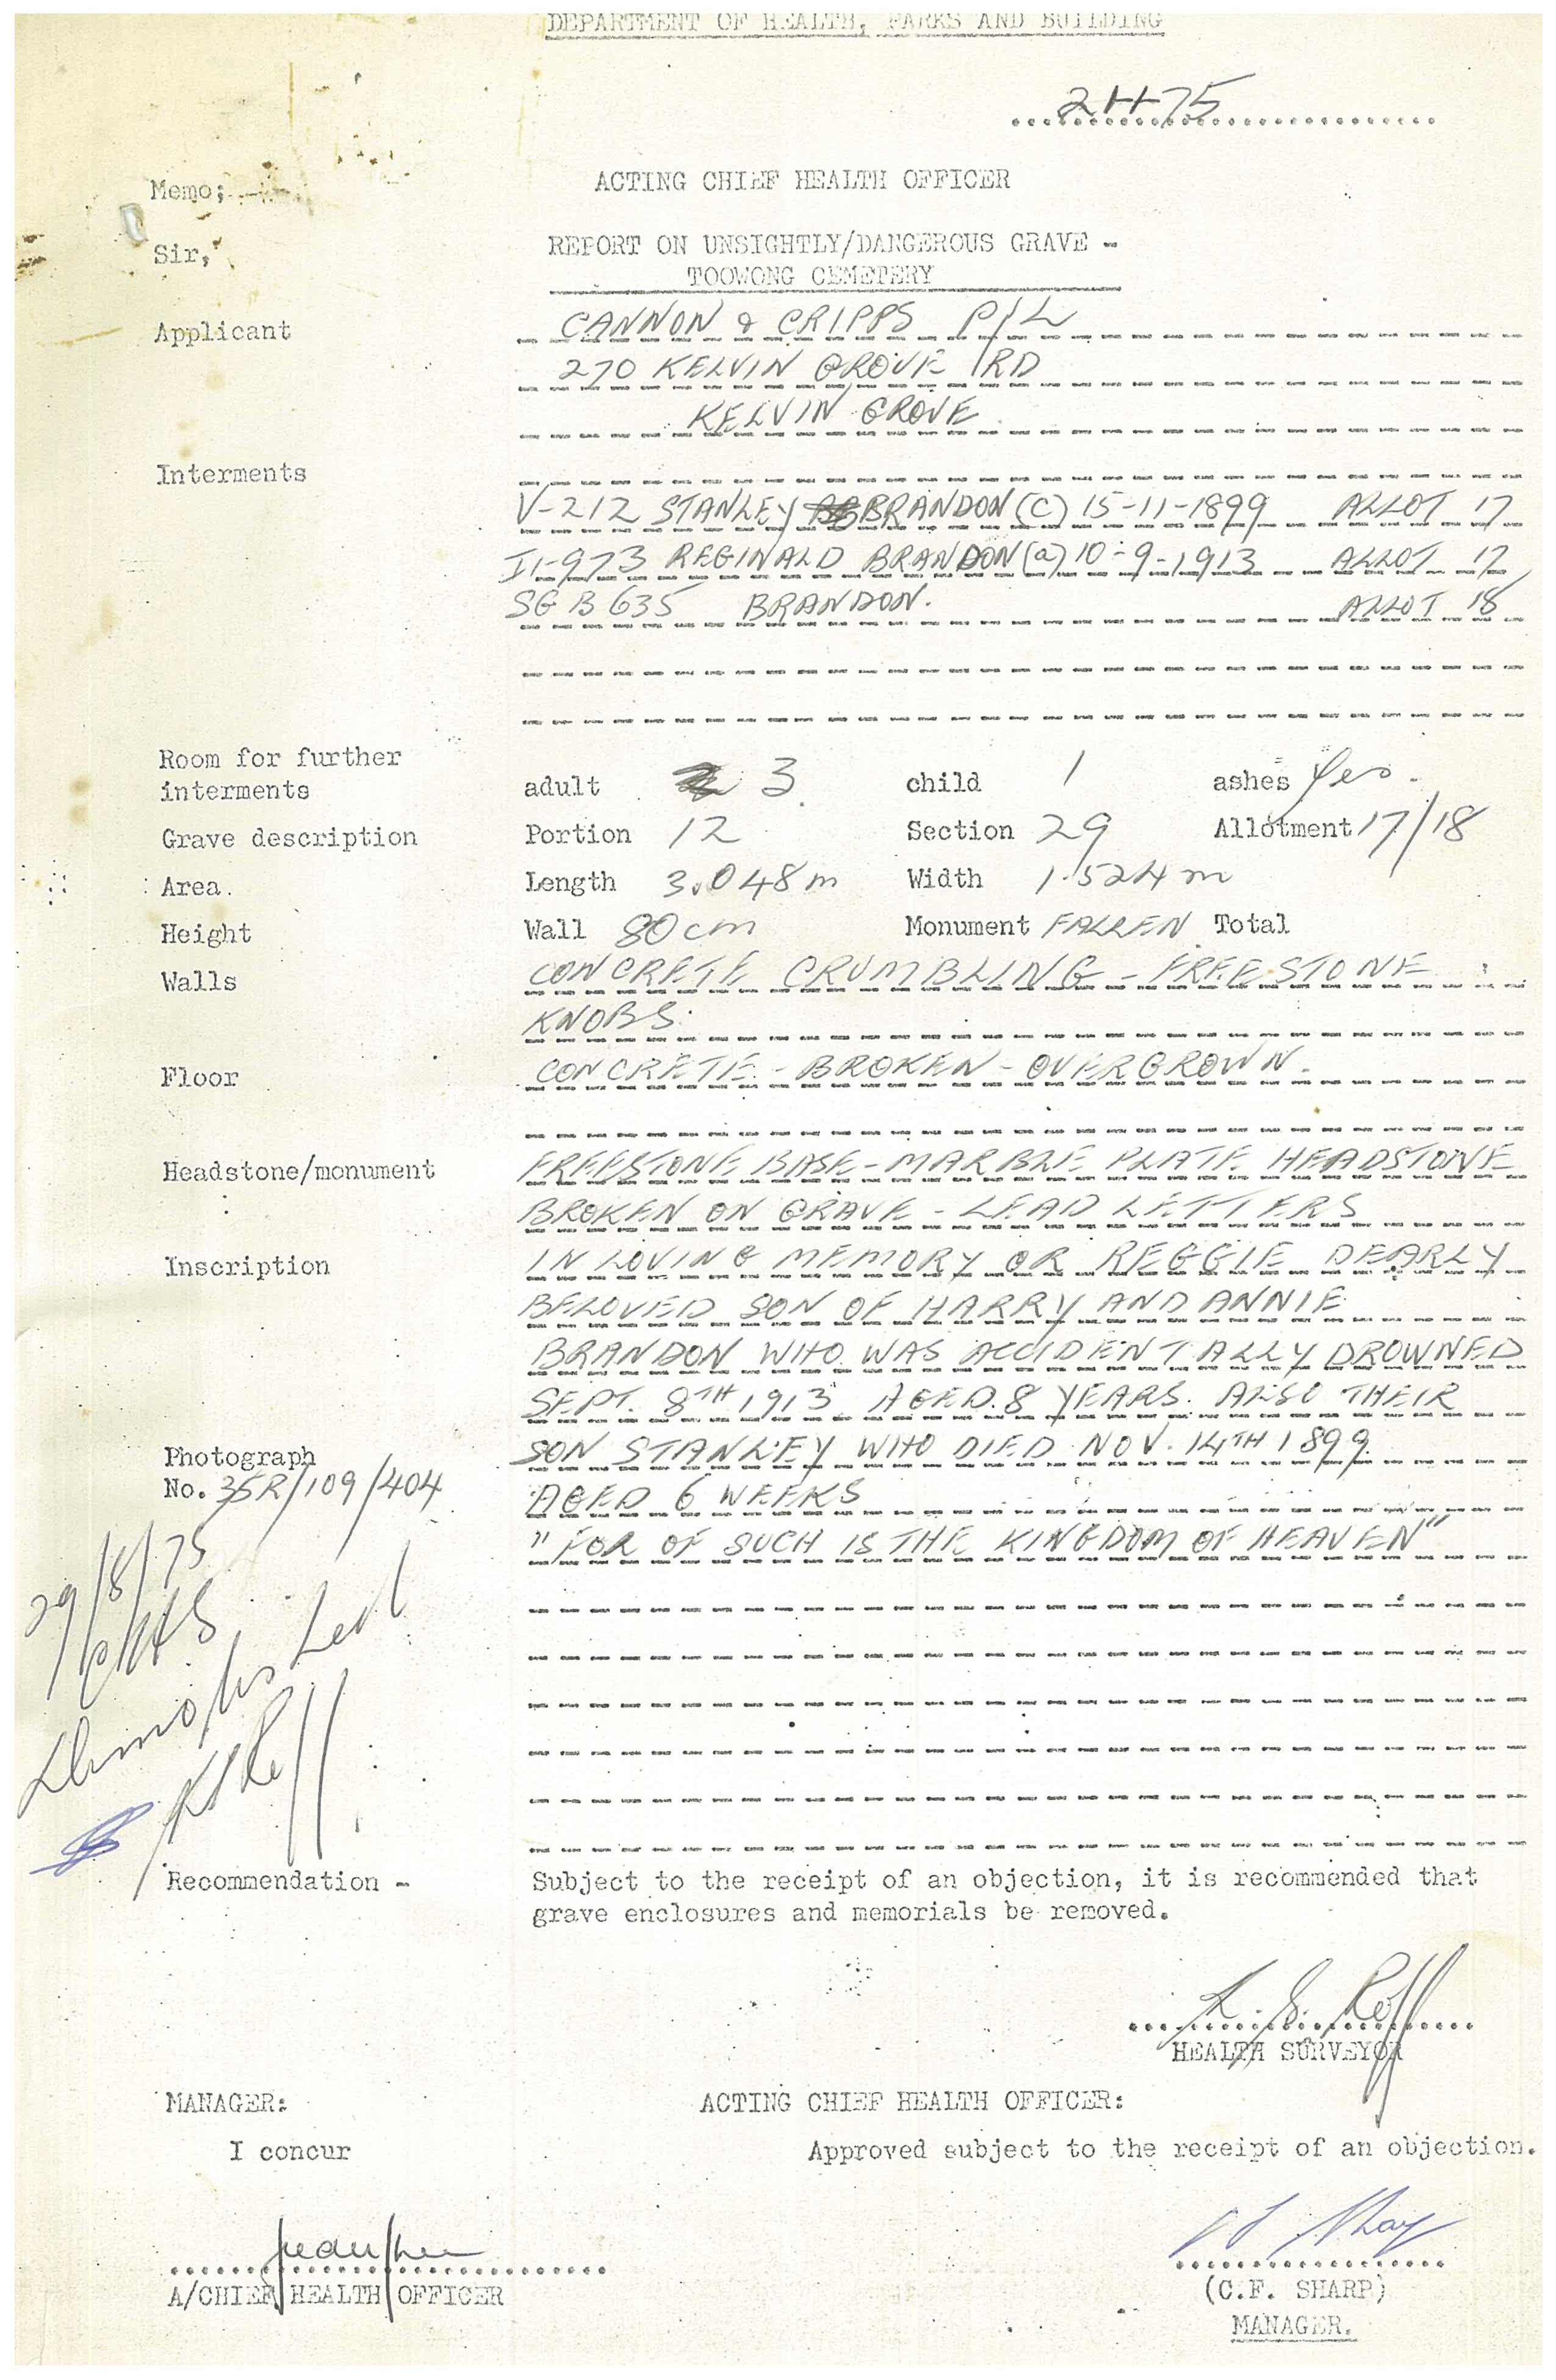 DEPARTMENT OF HEALTH, PARKS AND BUILDING
Memo;
ACTING CHIEF HEALTH OFFICER
Sir,
REPORT ON UNSIGHTLY/DANGEROUS GRAVE -
TOOWONG CEMETERY
Applicant CANNON & CRIPPS P/L
270 KELVIN GROVE RD
KELVIN GROVE
Interments
V-212 STANLEY BRANDON (C) 15-11-1899 ALLOT 17
II-973 REGINALD BRANDON (a) 10-9-1913 ALLOT 17
SG B 635 BRANDON. ALLOT 18
Room for further
interments adult 3 child 1 ashes Yes.
Grave description Portion 12 Section 29 Allotment 17/18
Area. Length 3.048m Width 1.524m
Height Wall 80cm Monument FALLEN Total
Walls CONCRETE CRUMBLING - FREESTONE
KNOBS.
Floor CONCRETE - BROKEN - OVERGROWN.
Headstone/monument FREESTONE BASE - MARBLE PLATE HEADSTONE
BROKEN ON GRAVE - LEAD LETTERS
Inscription IN LOVING MEMORY OR REGGIE DEARLY
BELOVED SON OF HARRY AND ANNIE
BRANDON WHO WAS ACCIDENTALLY DROWNED
SEPT. 8TH 1913 AGED 8 YEARS. ALSO THEIR
Photograph SON STANLEY WHO DIED NOV. 14TH 1899
No. 35R/109/404 AGED 6 WEEKS
"FOR OF SUCH IS THE KINGDOM OF HEAVEN"
29/8/75
Recommendation - Subject to the receipt of an objection, it is recommended that
grave enclosures and memorials be removed.
HEALTH SURVEYOR
MANAGER: ACTING CHIEF HEALTH OFFICER:
I concur Approved subject to the receipt of an objection.
A/CHIEF HEALTH OFFICER
(C.F. SHARP)
MANAGER.